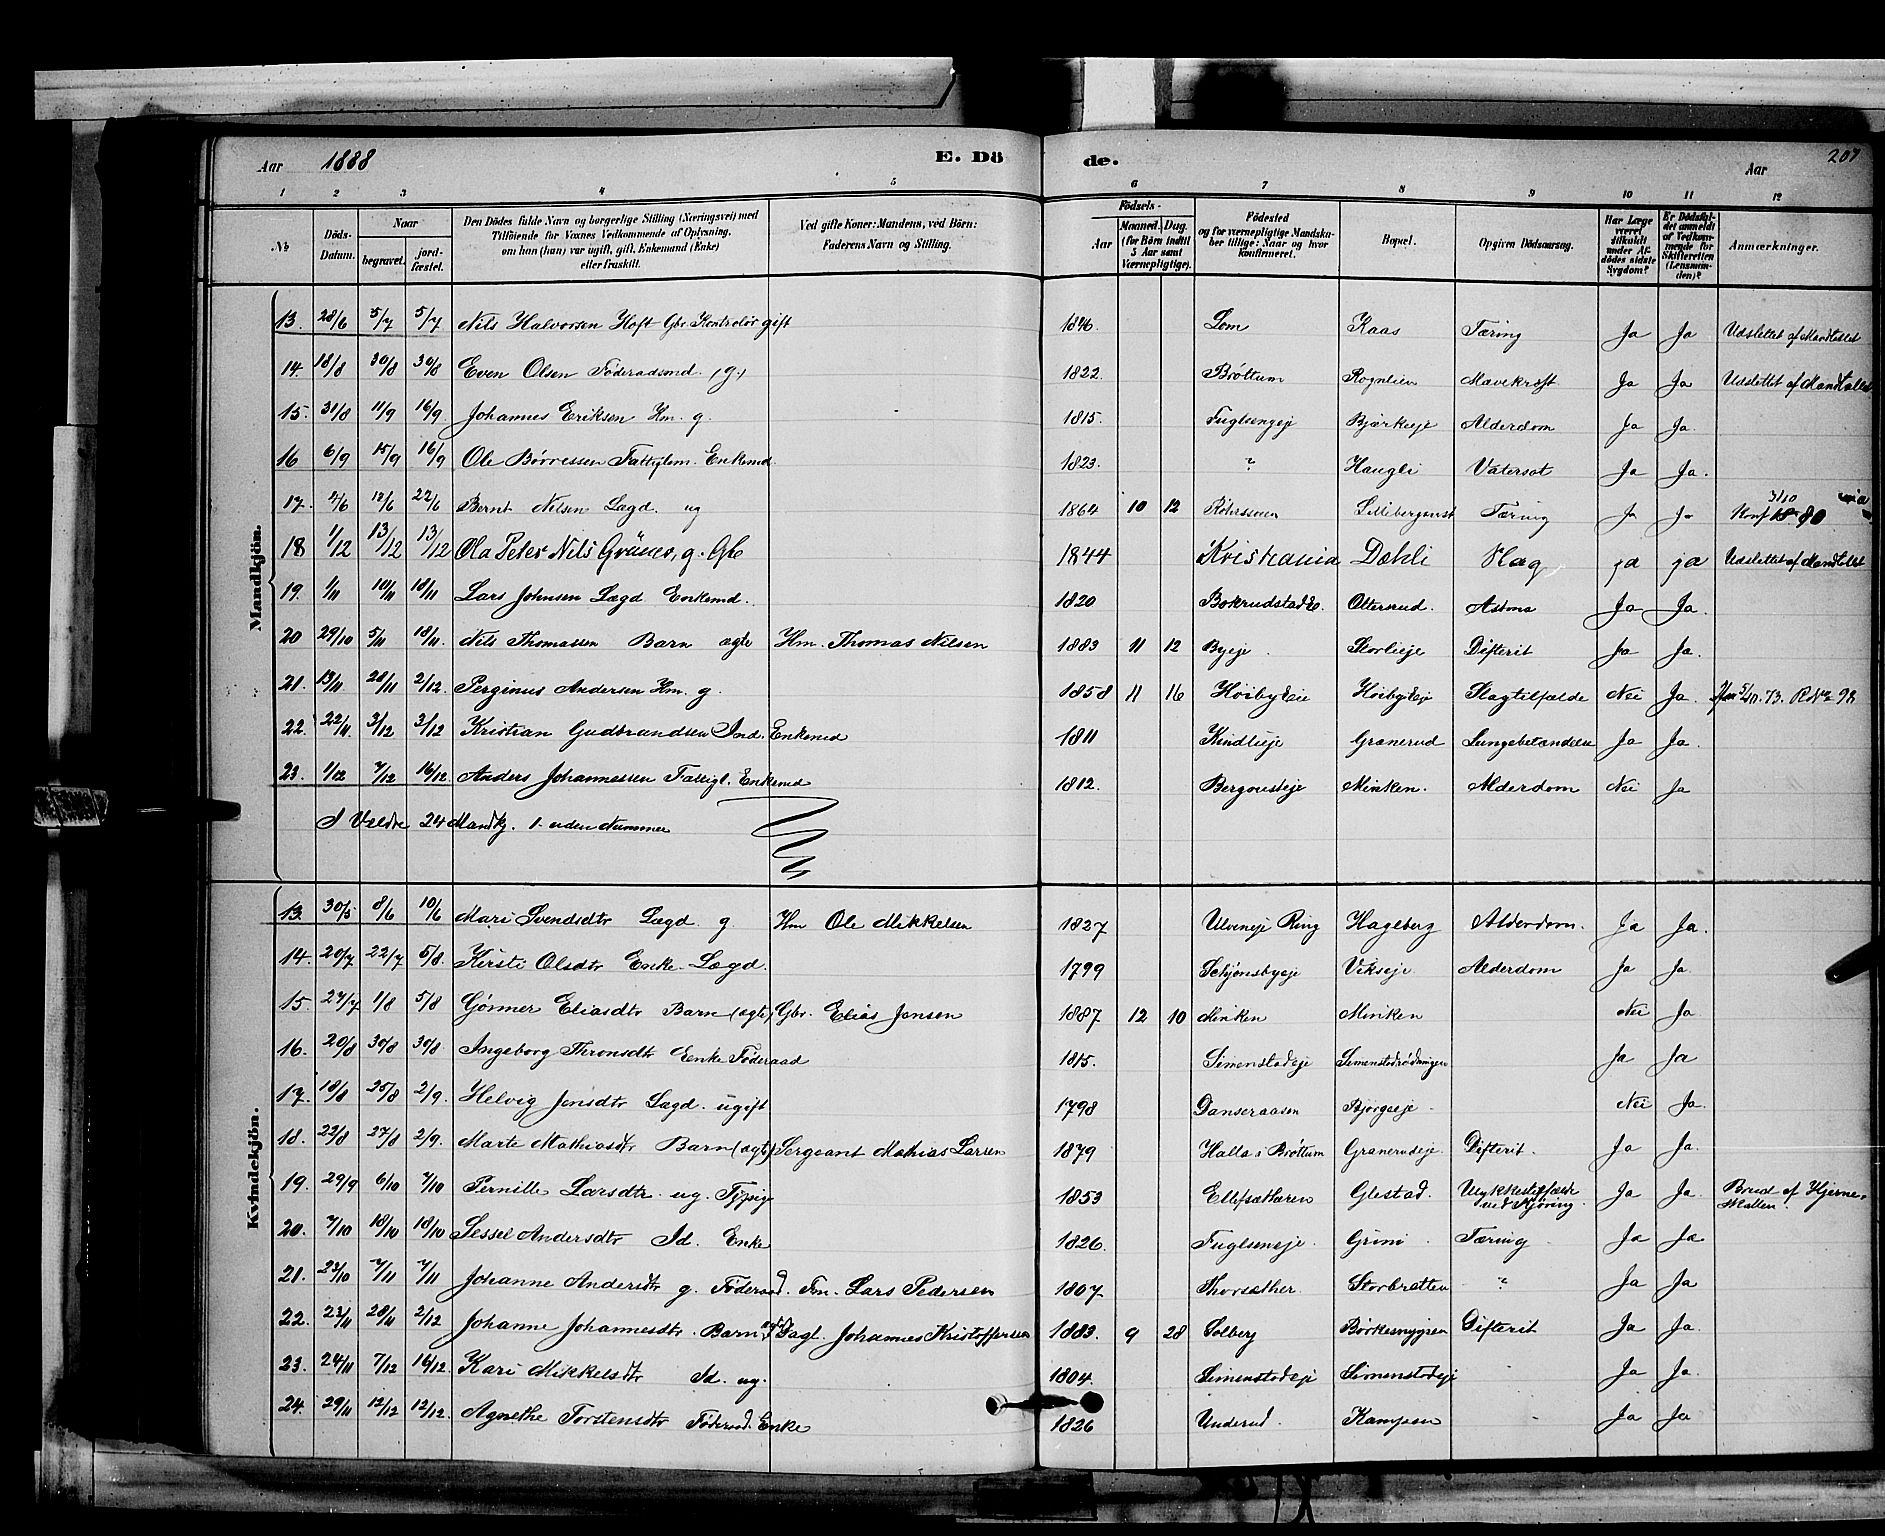 Aar 1888 E. Dö de. Aar 207
1 2 3 4 5 6 7 8 9 10 11 12
No Döds-Datum. Naar begravet. jord-fæstet. Den Dödes fulde Navn og borgerlige Stilling (Næringsvei) med Tilföiende for Voxnes Vedkommende af Oplysning, om han (hun) var ugift, gift, Enkemand (Enke) eller fraskilt. Ved gifte Koner: Mandens, ved Börn: Faderens Navn og Stilling. Födsels- Aar Maaned. Dag. (for Börn indtil 5 Aar samt Værnepligtige). Födested og for værnepligtige Mandskaber tillige: Naar og hvor konfirmeret. Bopæl. Opgiven Dödsaarsag. Har Læge været tilkaldt under Afdödes sidste Sygdom? Er Dödsfaldet anmeldt af Vedkommende for Skifteretten (Lensmanden)? Anmærkninger.
Mandkjön.
13. 28/6 5/7 5/7 Nils Halvorsen Hoft Gbr. Kontrolör gift 1846. Lom Kaas Tæring Ja Ja Udslettet af Mandtallet
14. 18/8 30/8 30/8 Even Olsen Föderadsmd. (g.) 1822. Bröttum Rognlien Mavekræft Ja Ja Udslettet af Mandtallet
15. 31/8 11/9 16/9 Johannes Eriksen Hm. g. 1815. Fuglsengeje Bjærkeeje Alderdom Ja Ja.
16 6/9 15/9 16/9 Ole Börressen Fattiglem. Enkemd. 1823. " Haugli Vatersot Ja Ja.
17. 4/6 12/6 22/6 Bernt Nilsen Lægd. ug 1864 10 12 Lillibergans Tæring Ja Ja Konf 1880
18 1/12 13/12 13/12 Ola Peter Nils Grüner, g. Gbr 1844 Kristiania Dæhli Slag ja ja Udslettet af Mandtallet
19. 1/11 10/11 18/11 Lars Johnsen Lægd Enkemd. 1820 Ottersrud. Astma Ja Ja.
20 29/10 5/11 18/11. Nils Thomassen Barn ægte Hm. Thomas Nilsen 1883 11 12 Byeje. Storlieje Difterit Ja Ja.
21. 13/11 20/11 2/12. Perginus Andersen Hm. g. 1858 11 16 Höibyeie Höibyeje Slagtilfælde Nei Ja.
22. 22/11 3/12 3/12 Kristian Gudbrandsen Ind. Enkemd 1811 Kindlieje Granerud Lungebetændelse Ja Ja.
23. 1/12 7/12 16/12. Anders Johannessen Fattigl. Enkemd 1812. Bergouseje Minken. Alderdom Nei Ja
I Veldre 24 Mandkj. 1 uden Nummer
Kvindekjön.
13. 30/5 8/6 10/6 Mari Svendsdtr Lægd g. Hm Ole Mikkelsen 1827 Ulveneje Ring Hageberg Alderdom. Ja Ja.
14. 20/7 22/7 5/8. Kirsti Olsdtr Enke. Lægd. 1799 Schjönsbyeje Vikseje. Alderdom Ja Ja
15. 27/7 1/8 5/8 Gönner Eliasdtr Barn (ægte) Gbr. Elias Jensen 1887 12 10 Minken Minken Nei Ja
16. 20/8 30/8 30/8. Ingeborg Thronsdtr Enke Föderaad 1815. Simenstadeje Simenstadrödningen Ja Ja
17. 18/8 25/8 2/9. Helvig Jonsdtr Lægd. ugift 1798 Danseraasen Bjørgeeje Nei Ja.
18. 22/8 27/8 2/9. Marte Mathiasdtr Barn (ægte) Sergeant Mathias Larsen 1879 Halla i Bröttum Graneruseje Difterit. Ja Ja.
19. 29/9 6/10 7/10 Pernille Larsdtr. ug. 1853 Ellefsæteren Glestad. Ulykkestilfælde ved Kjöring. Ja Ja. Brud af Hjerneskallen.
20. 7/10 18/10 18/10 Sessel Andersdtr Id. Enke 1826. Fuglseneje. Grini. Tæring. Ja Ja
21. 23/10 7/11 7/11 Johanne Andersdtr g. Föderaad. Fm. Lars Pedersen 1807. Thorsæther. Storbratten " Ja Ja
22. 23/11 28/11 2/12 Johanne Johannesdtr. Barn ægte Dagl. Johannes Kristoffersen 1883. 9 28 Solberg Difterit Ja Ja.
23. 24/11 7/12 16/12. Kari Mikkelsdtr Id. ug. 1804. Simenstadeje Simenstadeje Ja Ja.
24. 29/11 12/12 12/12. Agnethe Torstensdtr Föderaad. Enke 1826 Underud. Kampen Ja Ja